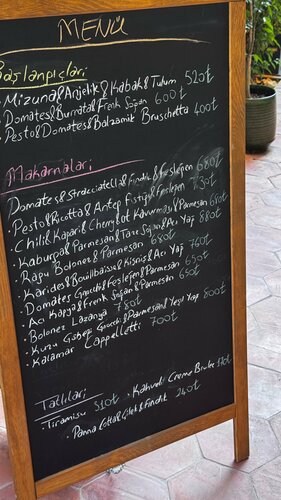 MENÜ
Başlangıçları
• Mizuna&Anjelik&Kabak&Tulum 520₺
• Domates&Burrata&Frenk Soğan 600₺
• Pesto&Domates&Balzamik Bruschetta 400₺
Makarnaları
Domates&Stracciatella&Fındık&Fesleğen 680₺
• Pesto&Ricotta&Antep Fıstığı&Fesleğen
• Chili&Kapari&Cherry&Ot Kavurması&Parmesan
• Kaburga&Parmesan&Taze Soğan&Acı Yağ 880₺
• Ragu Bolonez&Parmesan 680₺
• Karides&Bouillbaise&Kişniş&Acı Yağ 760₺
• Domates Gnocchi&Fesleğen&Parmesan 650₺
• Acı Kapya&Frenk Soğan&Parmesan 650₺
• Bolonez Lazanya 780₺
• Kuzu Gnocchi&Parmesan&Yeşil Yağ 800₺
• Kalamar Cappelletti 700₺
Tatlıları
• Tiramisu 310₺ • Kahveli Creme Brulee
• Panna Cotta&Çilek&Fındık 240₺